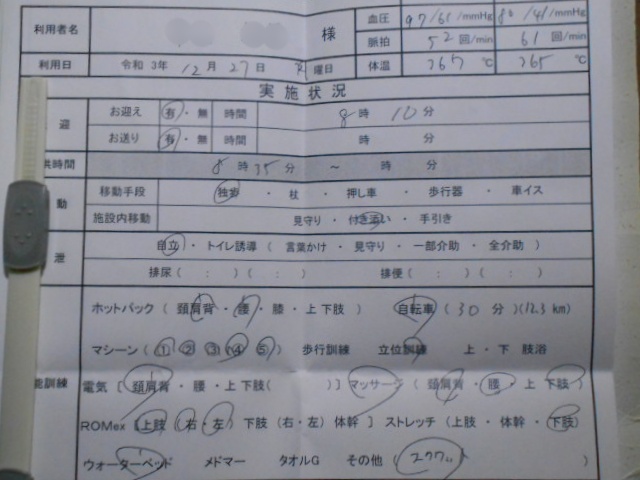 利用者名 様 血圧 97/61/mmHg 80/41/mmHg
脈拍 52 回/min 61 回/min
利用日 令和 3年 12月 27日 曜日 体温 365 ℃
実施状況
迎 お迎え 有・無 時間 8時 10分
お送り 有・無 時間 時 分
供時間 8時35分 ～ 時 分
動 移動手段 独歩 ・ 杖 ・ 押し車 ・ 歩行器 ・ 車イス
施設内移動 見守り ・ 付き添い ・ 手引き
泄 自立 ・ トイレ誘導 ( 言葉かけ ・ 見守り ・ 一部介助 ・ 全介助 )
排尿( : )( : ) 排便( : )( : )
ホットパック ( 頚肩背 ・ 腰 ・ 膝 ・ 上 下肢 ) 自転車 ( 30 分 )(12.3 km)
マシーン ( ① ② ③ ④ ⑤ ) 歩行訓練 立位訓練 上 ・ 下 肢浴
能訓練 電気 [ 頚肩背 ・ 腰 ・ 上 下肢( )] マッサージ ( 頚肩背 ・ 腰 ・ 上 下肢 )
ROMex [ 上肢 (右・左) 下肢 (右・左) 体幹 ] ストレッチ (上肢 ・ 体幹 ・ 下肢)
ウォーターベッド メドマー タオルG その他 ( )